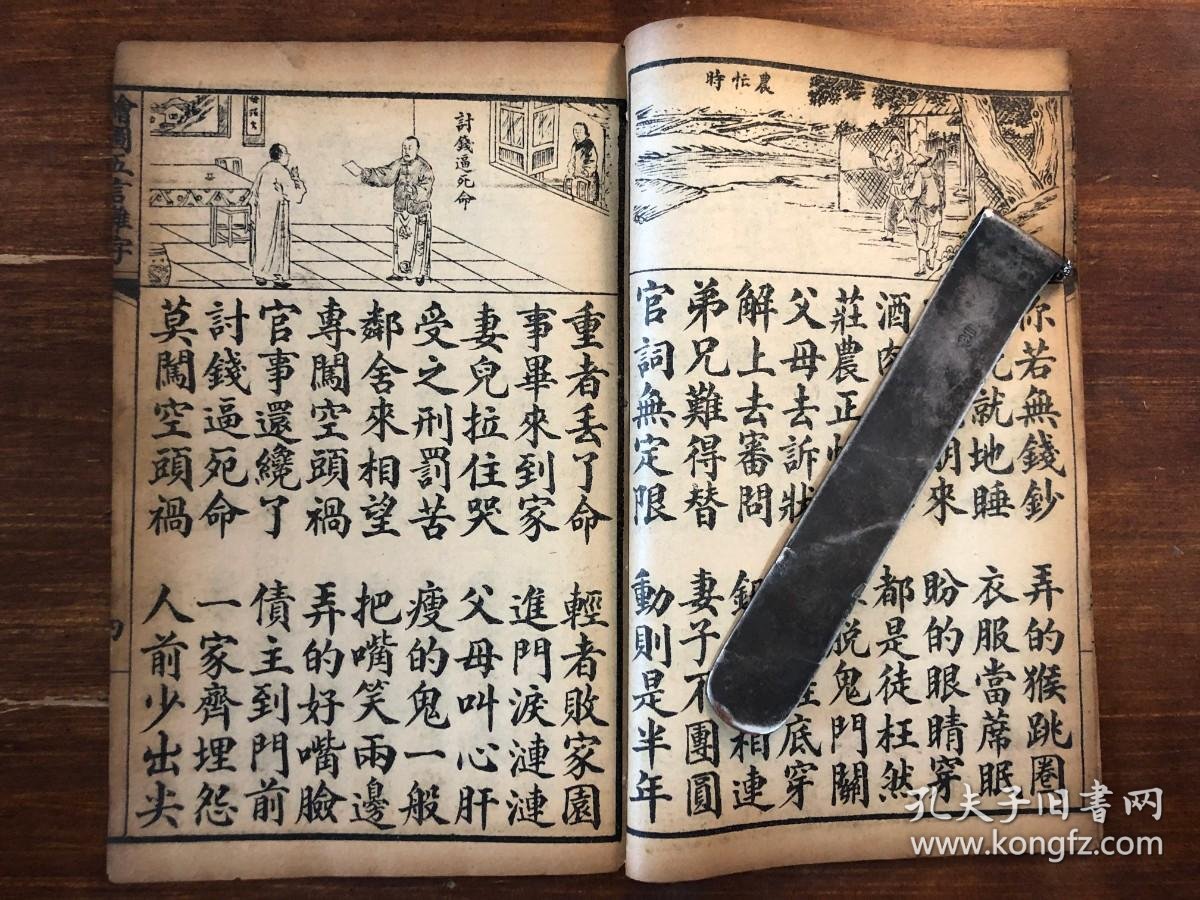 農忙時
你若無錢鈔 弄的猴跳圈
就地睡 衣服當蓆眠
來 盼的眼睛穿
酒肉 都是徒枉然
莊農正忙 脱鬼門關
父母去訴狀 底穿
解上去審問 相連
弟兄難得替 妻子不團圓
官詞無定限 動則是半年
討錢逼死命
重者丢了命 輕者敗家園
事畢來到家 進門淚漣漣
妻兒拉住哭 父母叫心肝
受之刑罰苦 瘦的鬼一般
鄰舍來相望 把嘴笑兩邊
專闖空頭禍 弄的好嘴臉
官事還纔了 債主到門前
討錢逼死命 一家齊埋怨
莫闖空頭禍 人前少出尖
繪圖五言雜字
孔夫子旧書网
www.kongfz.com